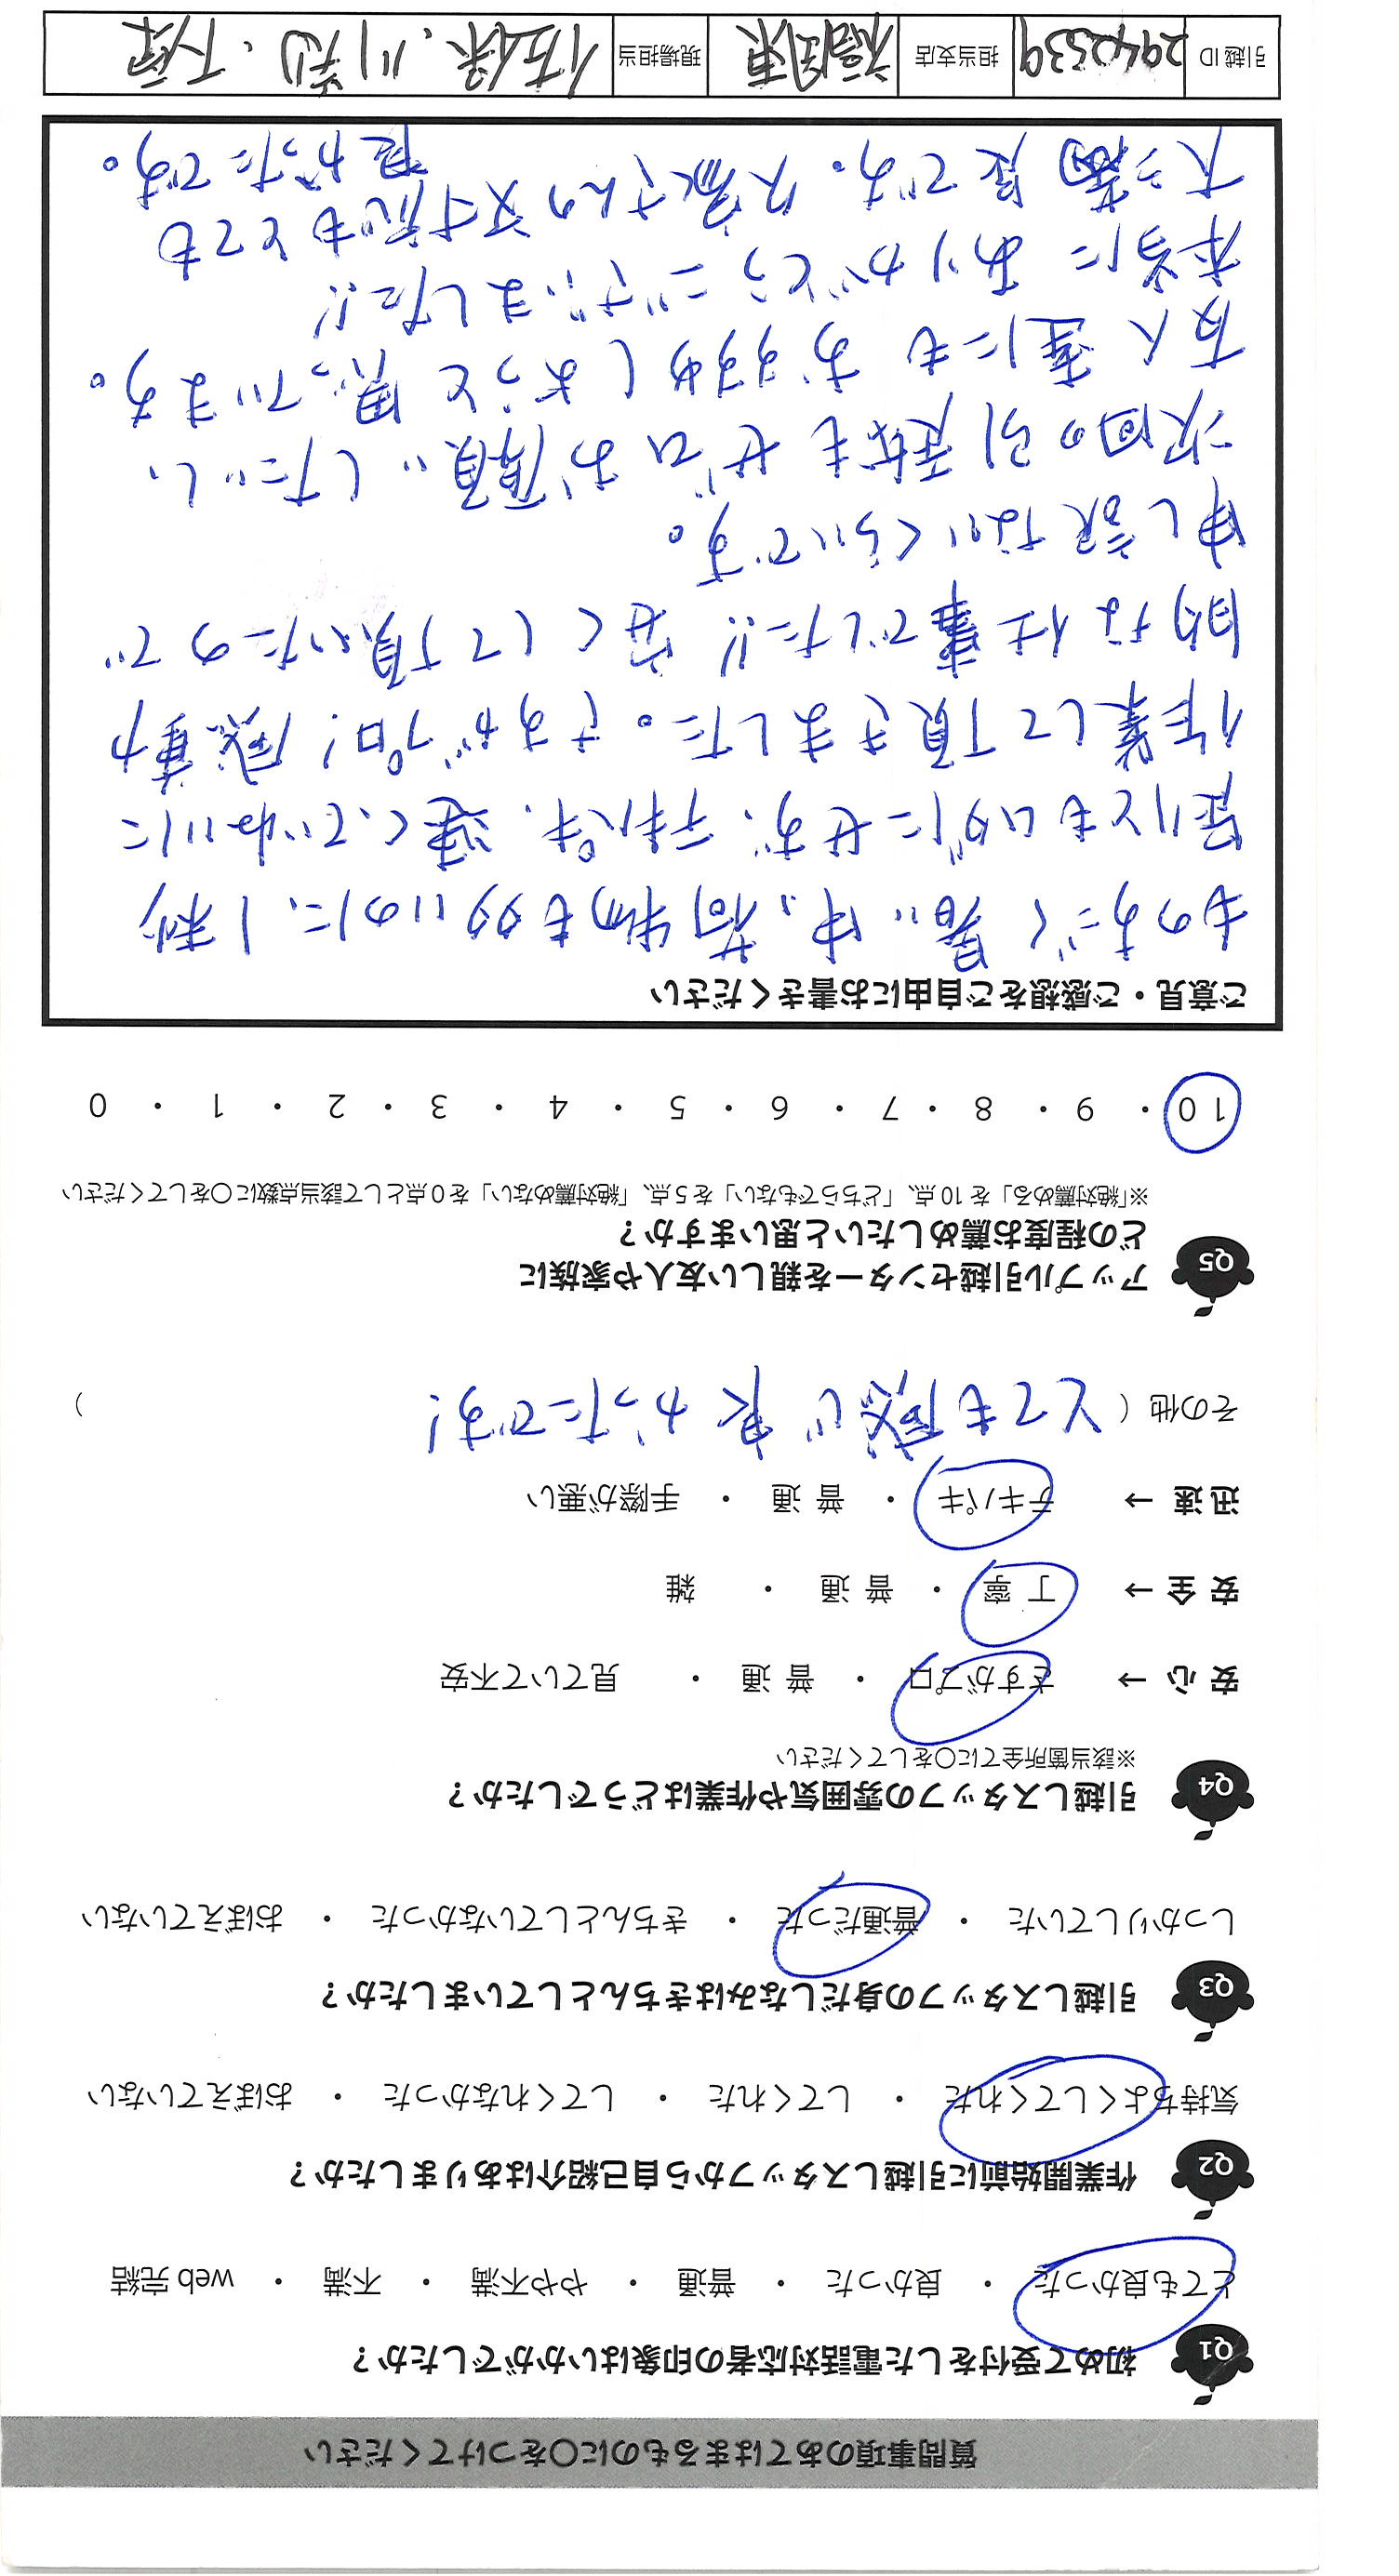 質問事項のあてはまるものに〇をつけてください
Q1 初めて受付をした電話対応者の印象はいかがでしたか？
とても良かった ・ 良かった ・ 普通 ・ やや不満 ・ 不満 ・ web 完結
Q2 作業開始前に引越しスタッフから自己紹介はありましたか？
気持ちよくしてくれた ・ してくれた ・ してくれなかった ・ おぼえていない
Q3 引越しスタッフの身だしなみはきちんとしていましたか？
しっかりしていた ・ 普通だった ・ きちんとしていなかった ・ おぼえていない
Q4 引越しスタッフの雰囲気や作業はどうでしたか？
※該当箇所全てに〇をしてください
安 心 → さすがプロ ・ 普 通 ・ 見ていて不安
安 全 → 丁 寧 ・ 普 通 ・ 雑
迅 速 → テキパキ ・ 普 通 ・ 手際が悪い
その他 ( とても感じ良かったです! )
Q5 アップル引越センターを親しい友人や家族に
どの程度お薦めしたいと思いますか？
※「絶対薦める」を 10 点、「どちらでもない」を 5 点、「絶対薦めない」を 0 点として該当点数に〇をしてください
10 ・ 9 ・ 8 ・ 7 ・ 6 ・ 5 ・ 4 ・ 3 ・ 2 ・ 1 ・ 0
ご意見・ご感想をご自由にお書きください
ものすごく暑い中、荷物も多いのに、1秒
足りともムダにせず、テキパキ、速くていねいに
作業して頂きました。さすがプロ! 感動
的な仕事でした!! 安くして頂いたので
申し訳ないくらいです。
次回の引越もぜひお願いしたいし、
友人達にもおすすめしようと思っています。
本当にありがとうございました!!
大満足です。久家さんの対応もとても
良かったです。
引越 ID 2942539 担当支店 福岡東 現場担当 佐保、川